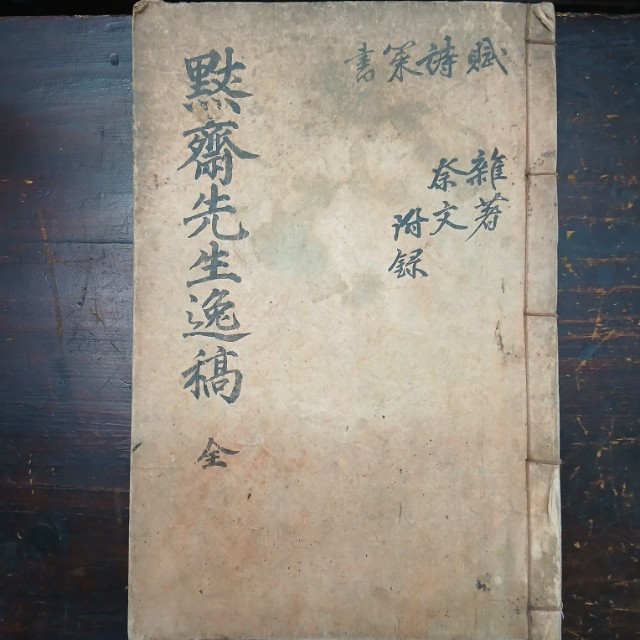 賦詩策書
雜著
祭文
附錄
黙齋先生逸稿 全